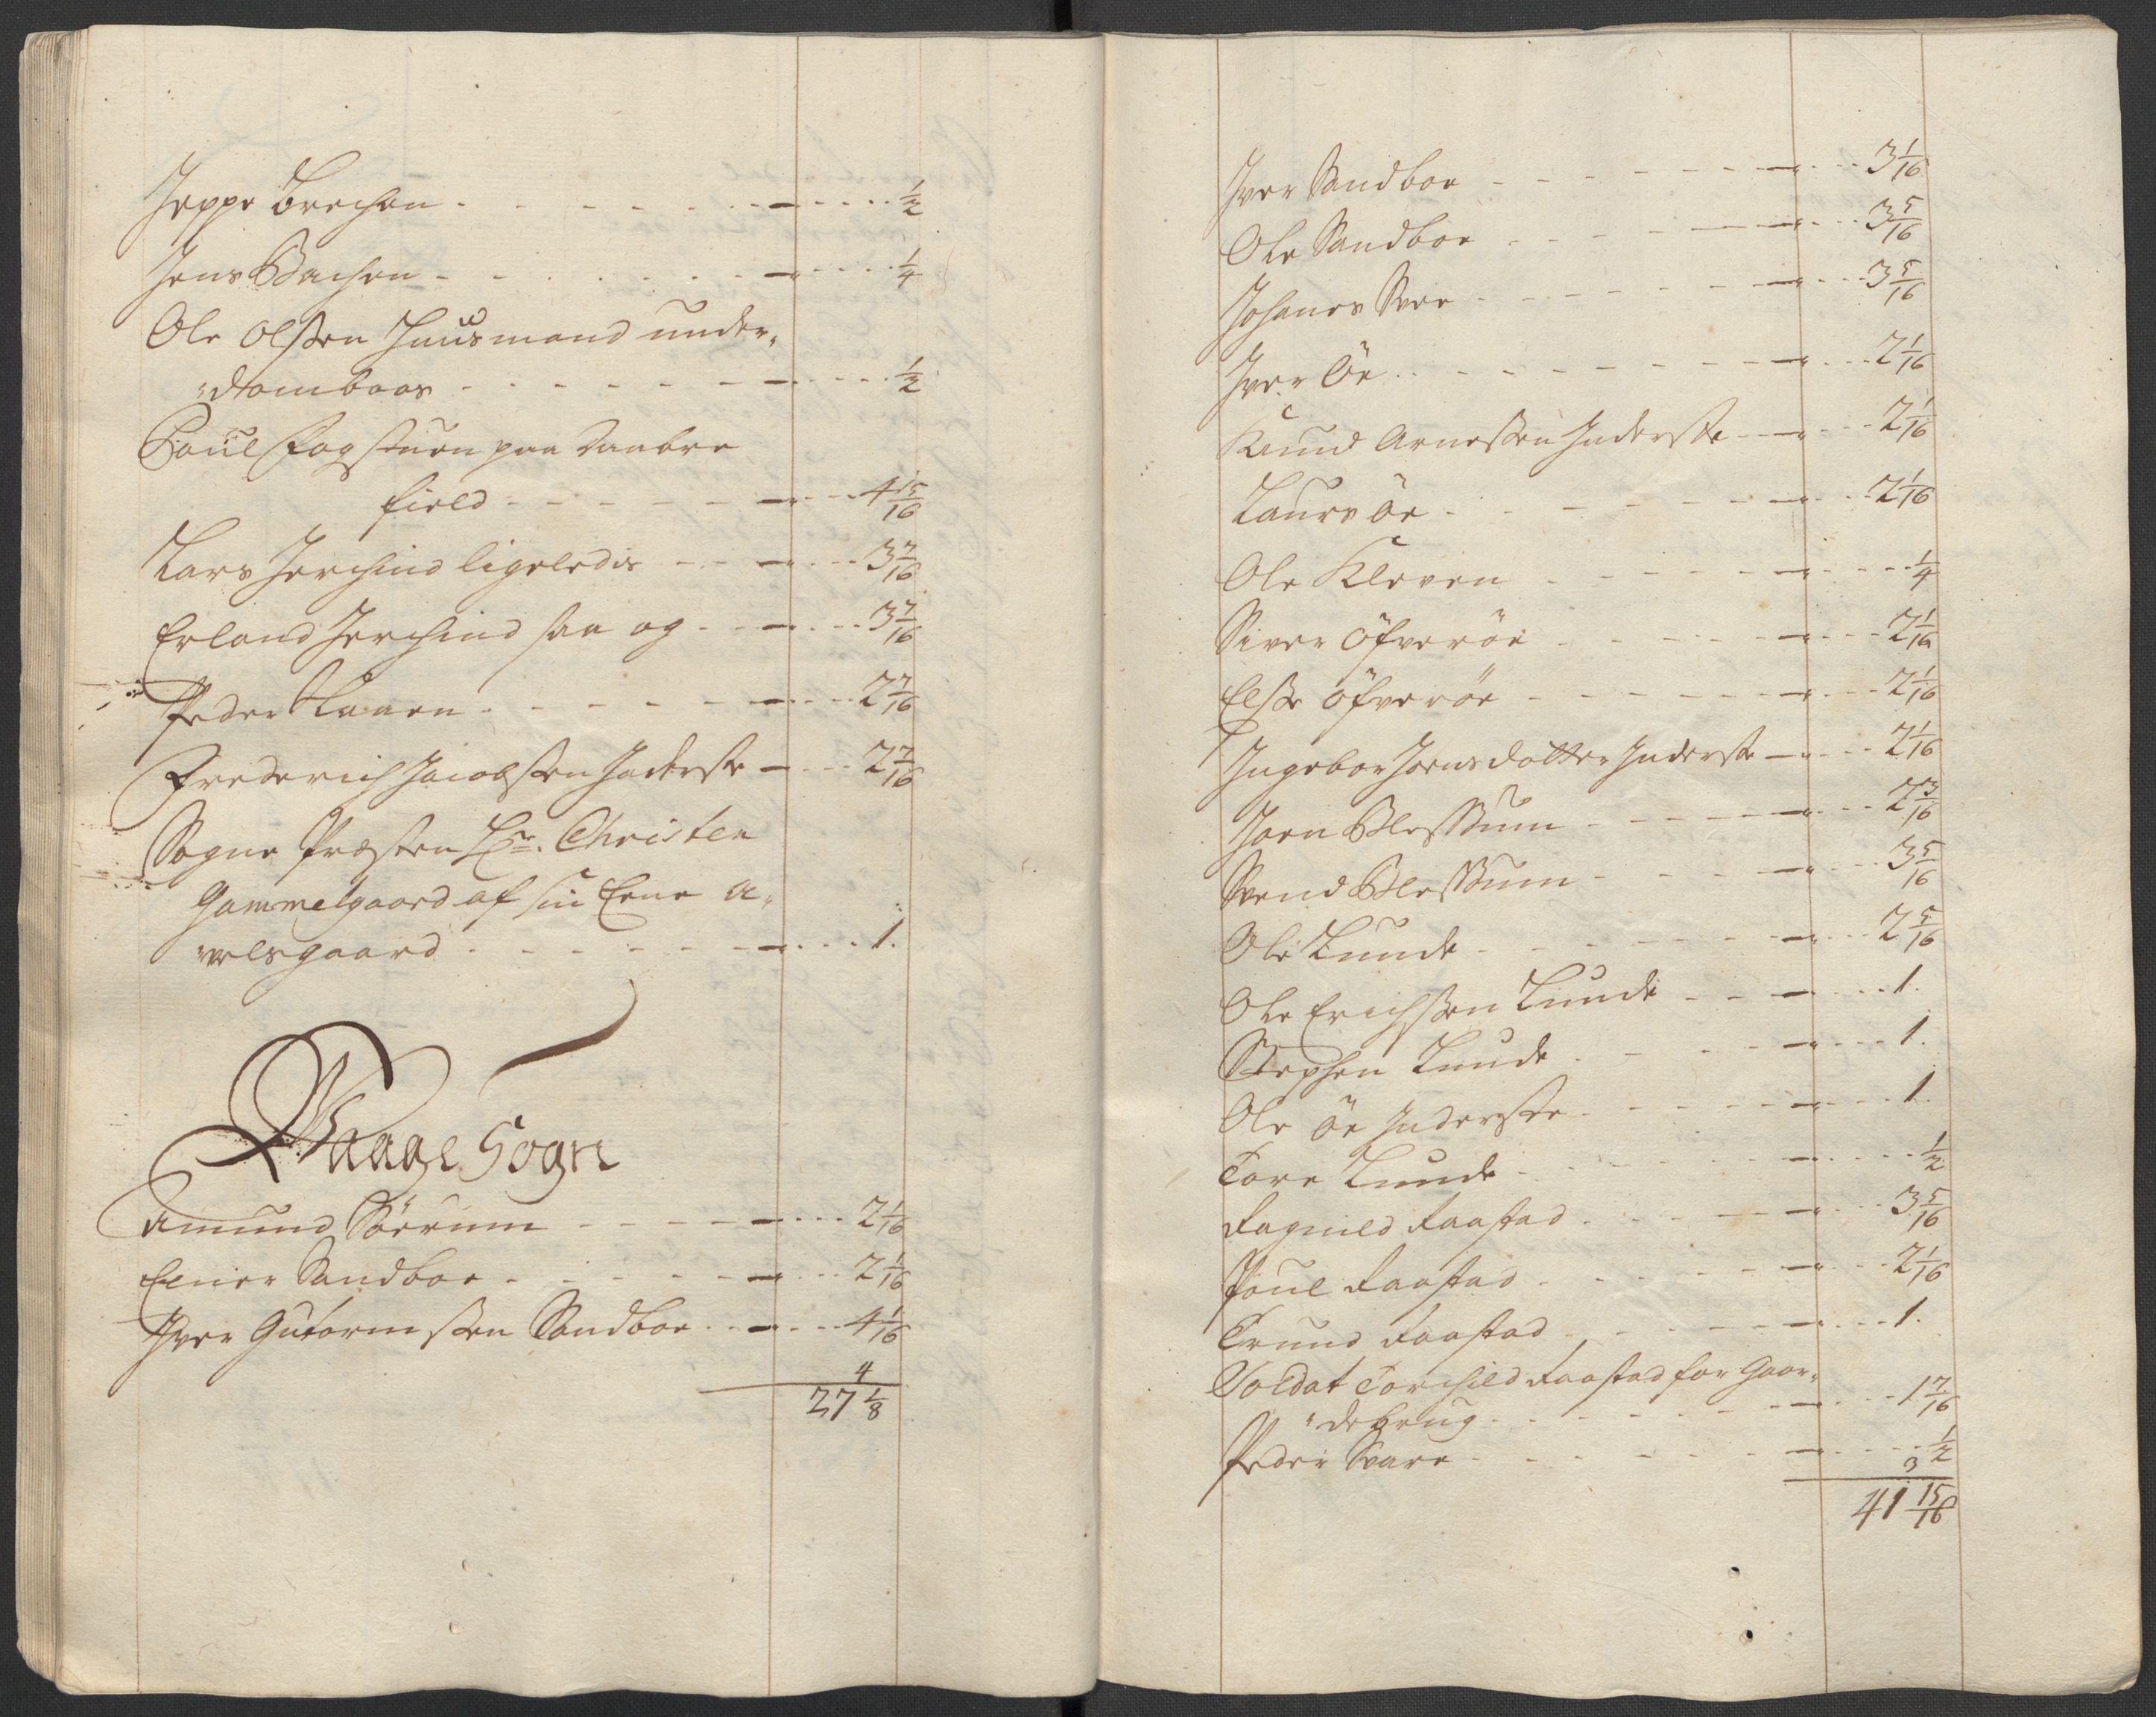 Jeppe Brechen - - - - - - - — - - - - ½
Jens Bachen - - - - - - - — - - - - ¼
Ole Olßen Huusmand under„
„dombaas - - - - - - - — - - - - ½
Poül Fogstuen paa Daabre
field - - - - - — - - 4 15/16
Lars Jerchind ligeledis - - — - - 3 7/16
Erland Jerchind saa og - - — - - 3 7/16
Peder Laaen - - - - - — - - 2 7/16
Frederich Jacobßen Inderste — - - 2 7/16
Sogne Præsten Hr. Christen
Gammelgaard af sin Eene A„
„velsgaard - - - - - — - - - 1.
Waage Sogn
Amund Sörrum - - - - — - - - 2 1/16
Einer Sandboe - - - - - — - - 2 1/16
Iver Gutormßen Sandboe - - — - - 4 1/16
4
27 1/8
Iver Sandboe - - - - - - — - - 3 1/16
Ole Sandboe - - - - - — - - 3 5/16
Johanes Svee - - - - - - — - - 3 5/16
Iver Öe - - - - - - - — - - 2 1/16
Knud Arneßen Inderste - — - - 2 1/16
Laurs Öe - - - - - - — - - 2 1/16
Ole Kleven - - - - - — - - - ¼
Siver Öfveröe - - - - - — - - 2 1/16
Elße Öfveröe - - - - - — - - 2 1/16
Ingebor Joensdatter Inderste — - - 2 1/16
Joen Bleßum - - - - - — - - 2 3/16
Svend Bleßum - - - - — - - 3 5/16
Ole Lunde - - - - - - — - - 2 5/16
Ole Erichßen Lunde - - — - - - 1.
Stephen Lunde - - - - — - - - 1.
Ole Öe Inderste - - - - - — - - - 1.
Tore Lunde - - - - - - — - - - ½
Ragnild Raastad - - - - — - - 3 5/16
Poul Raastad - - - - - — - - 2 1/16
Trund Raastad - - - - — - - - 1.
Soldat Torchild Raastad for Gaar„
„debrug - - - - - - — - - 1 7/16
Peder Svare - - - - - - — - - - ½
3
41 15/16